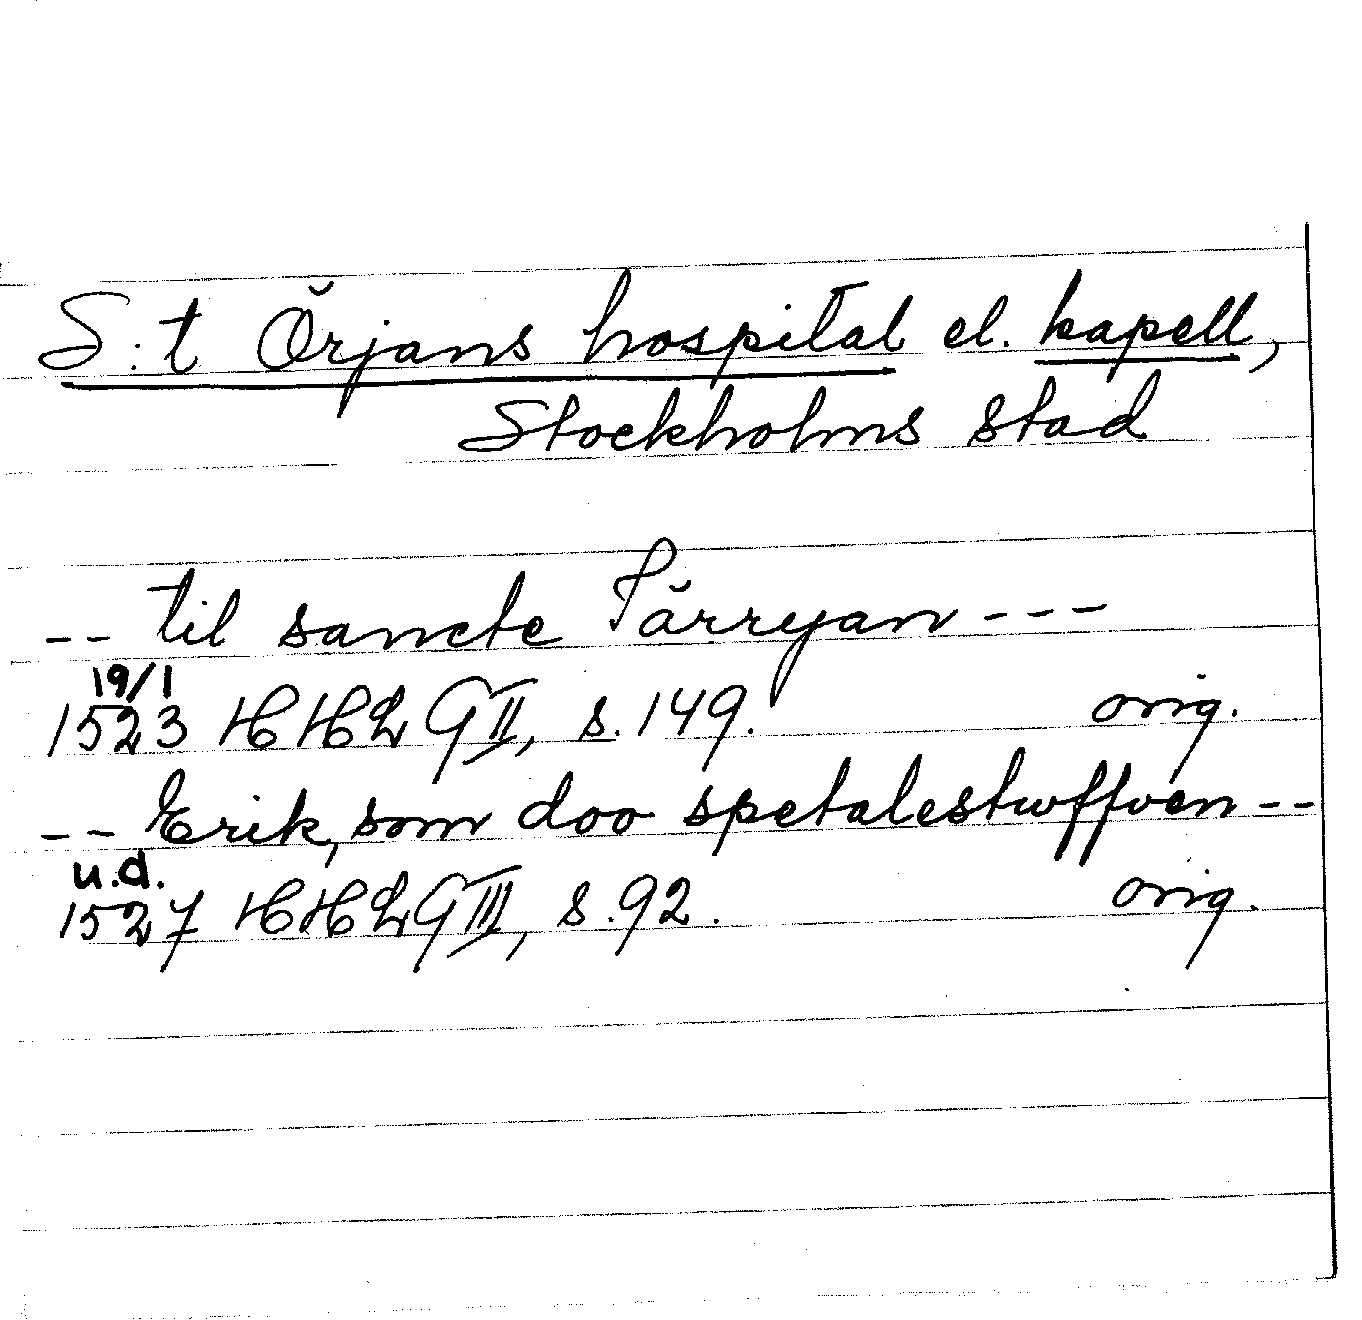 S:t Örjans hospital el. kapell,
Stockholms stad
-- til sancte Pärryan ---
19/1
1523 HHLGII, s. 149. orig.
-- Erik, som doo spetalestuffven --
u.d.
1527 HHLGIII, s. 92. orig.